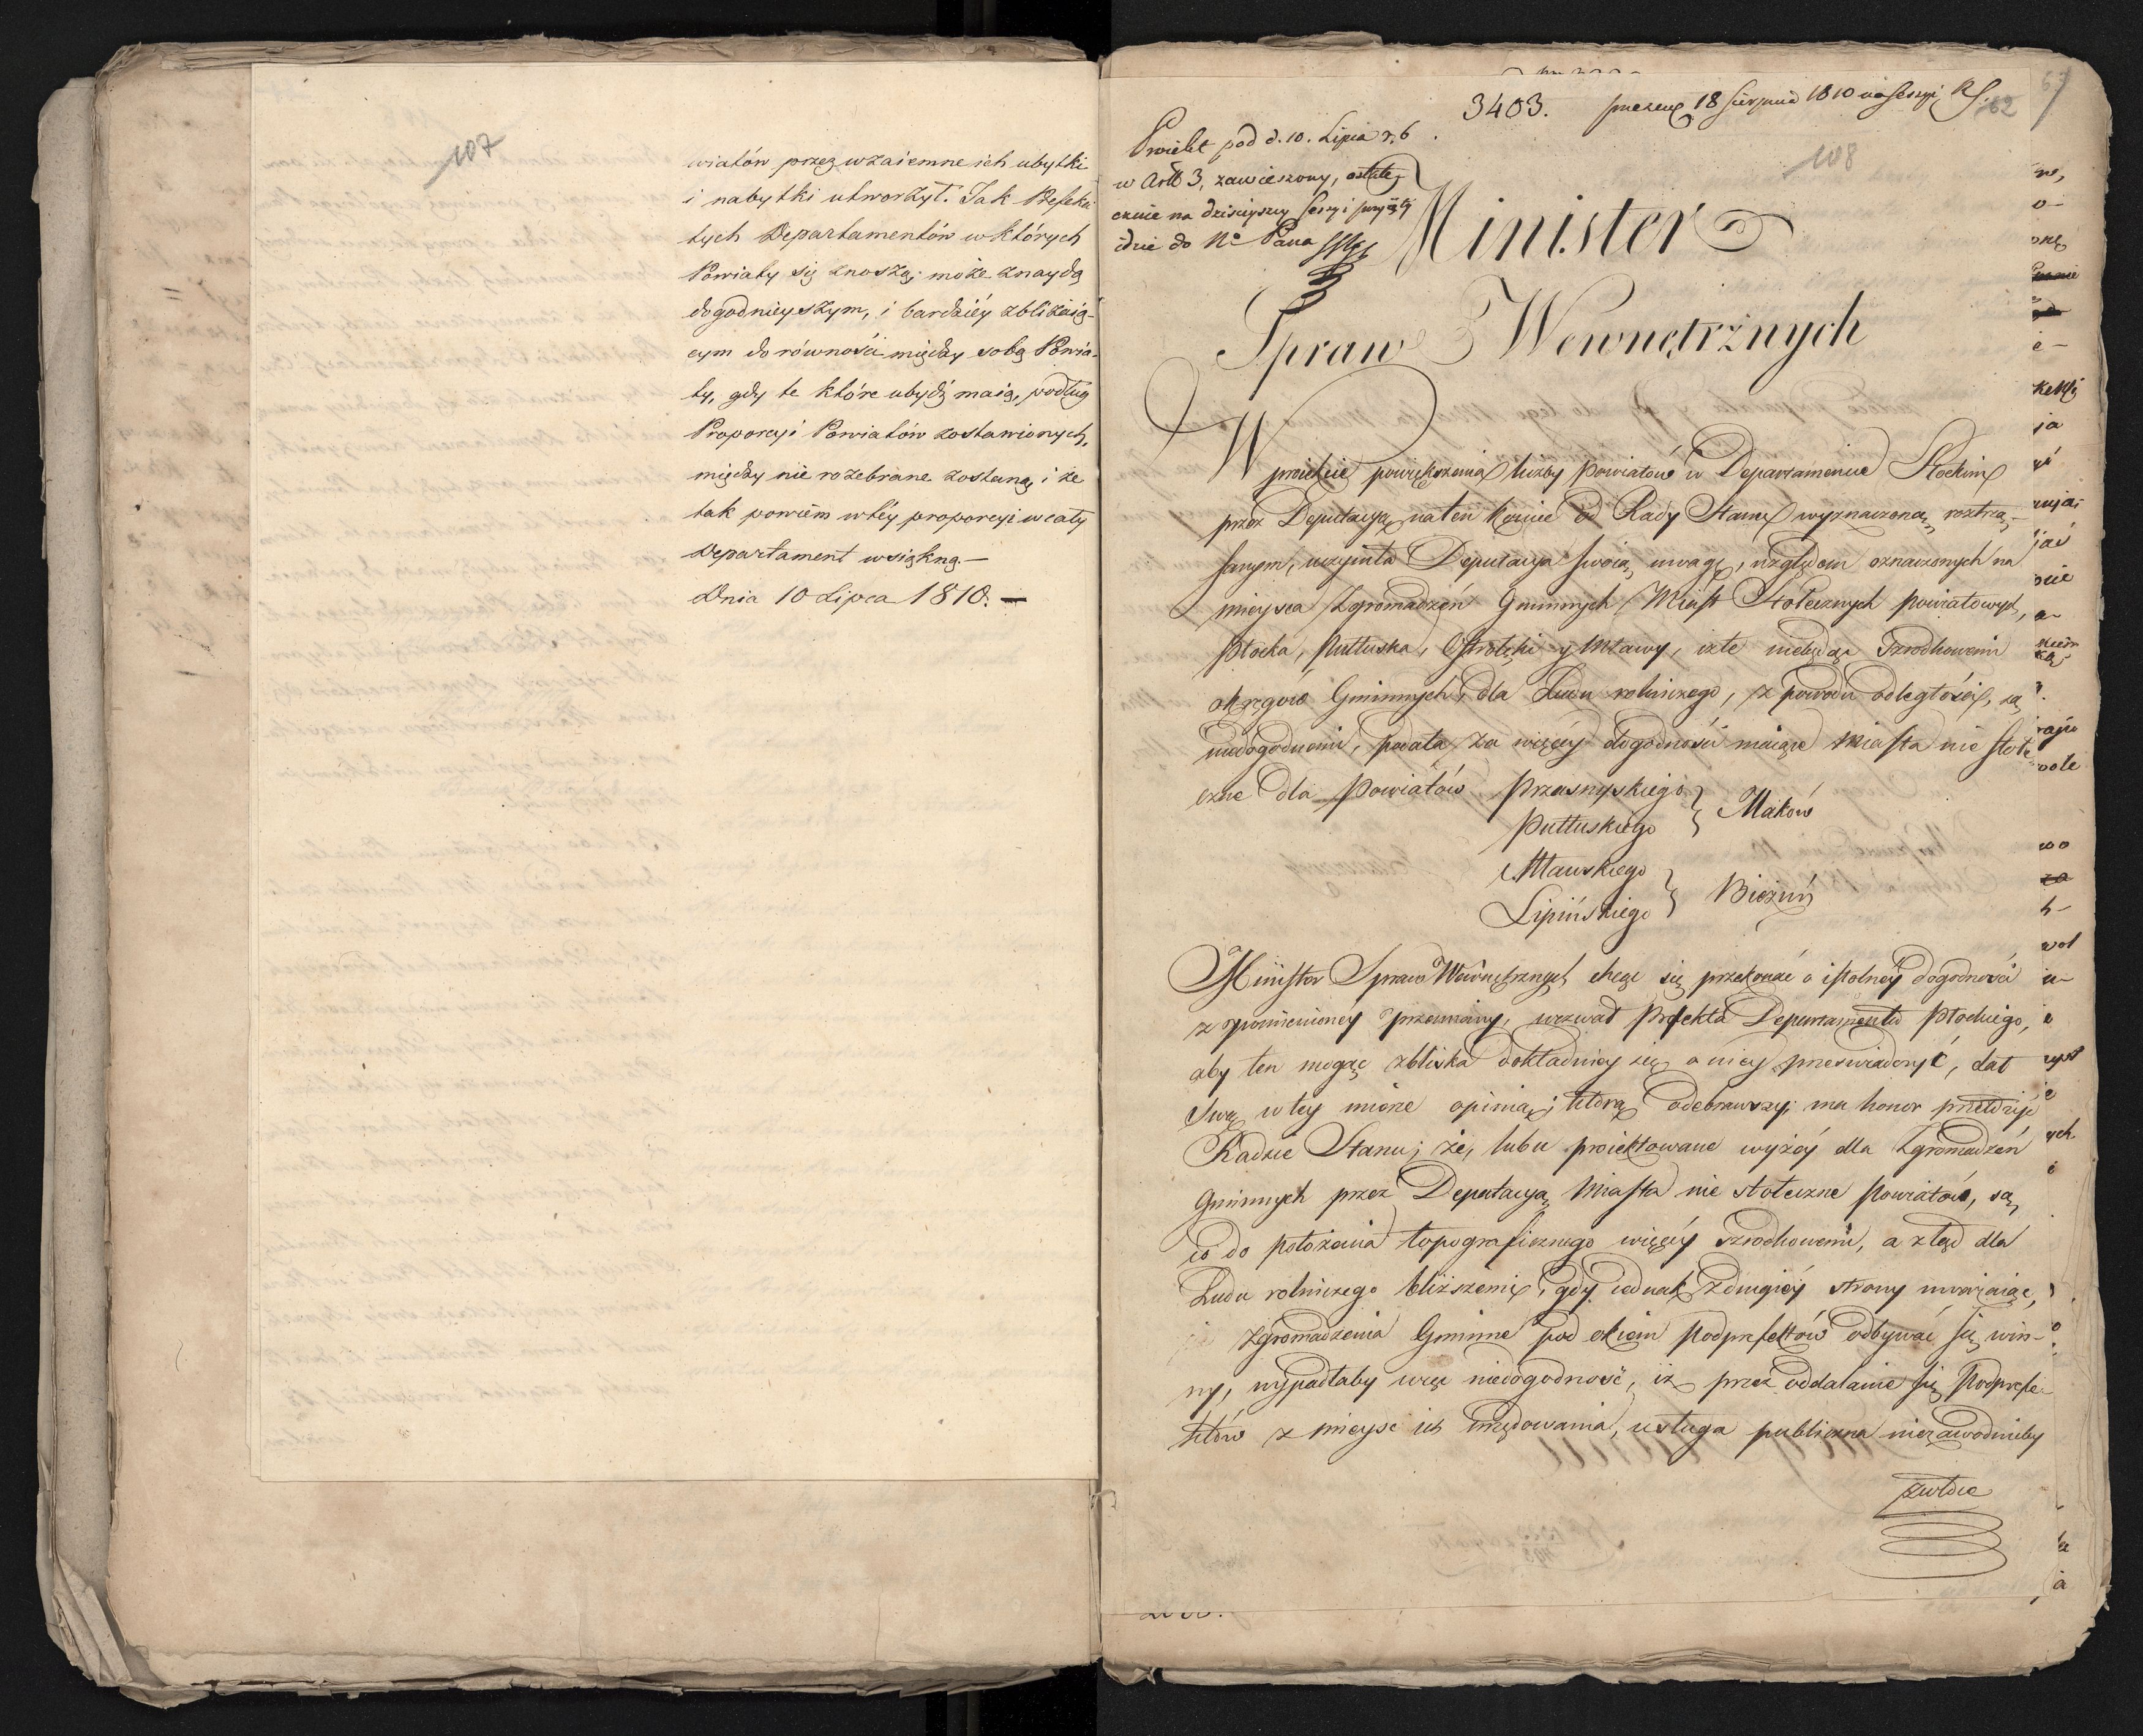 107
wiatów przez wzaiemne ich ubytki
i nabytki utworzył. Jak Prefekci
tych Departamentów w których
Powiaty się znoszą; może znaydą
dogodnieyszym, i bardziéy zbliżaią-
cym do równości między sobą Powia-
ty, gdy te które ubydź maią, podług
Proporcyi Powiatów zostawionych,
między nie rozebrane zostaną i że
tak powiem w téy proporcyi w cały
Departament wsiąkną.—
Dnia 10 Lipca 1810. —
3403. 18 Sierpnia 1810 na Sessyi RS.
62
108
Proiekt pod d. 10. Lipca r. b.
w Artt 3, zawieszony, ostate-
cznie na dzisieyszey Sessyi przyięty
idzie do Nº Pana
Minister
Spraw Wewnętrznych
W proiekcie powiększenia liczby powiatów w Departamencie Płockim
przez Deputacyą na ten koniec od Rady Stanu wyznaczoną, roztrzą-
sanym, uczyniła Deputacya swoią uwagę, względem oznaczonych na
mieysca Zgromadzeń Gminnych Miast Stołecznych powiatowych,
Płocka, Pułtuska, Ostrołęki y Mławy, iż te niebędąc Srzodkowemi
okręgów Gminnych, dla Ludu rolniczego, z powodu odległości, są
niedogodnemi, podała za więcéy dogodności maiące Miasta nie stołe-
czne dla Powiatów Przasnyskiego
Pułtuskiego } Maków
Mławskiego
Lipińskiego } Bieżuń
Minister Spraw Wewnętrznych chcąc się przekonać o istotnéy dogodności
z rzpomienioney przemiany, wezwał Prefekta Departamentu Płockiego,
aby ten mogąc zbliska dokładniey się o niéy przeświadczyć, dał
Swą w tey mierze opinią; którą odebrawszy; ma honor przełożyć
Radzie Stanu; że, lubo proiektowane wyżéy dla Zgromadzeń
Gminnych przez Deputacyą Miasta nie stołeczne Powiatów, są
co do położenia topograficznego więcéy Srzodkowemi, a ztąd dla
Ludu rolniczego bliższemi, gdy iednak z drugiéy strony uważaiąc,
Zgromadzenia Gminne pod okiem Podprefektów odbywać się win-
ny, wypadłaby więc niedogodność, iż przez oddalanie się Podprefe-
któw z mieysc ich urzędowania, usługa publiczna niezawodnieby